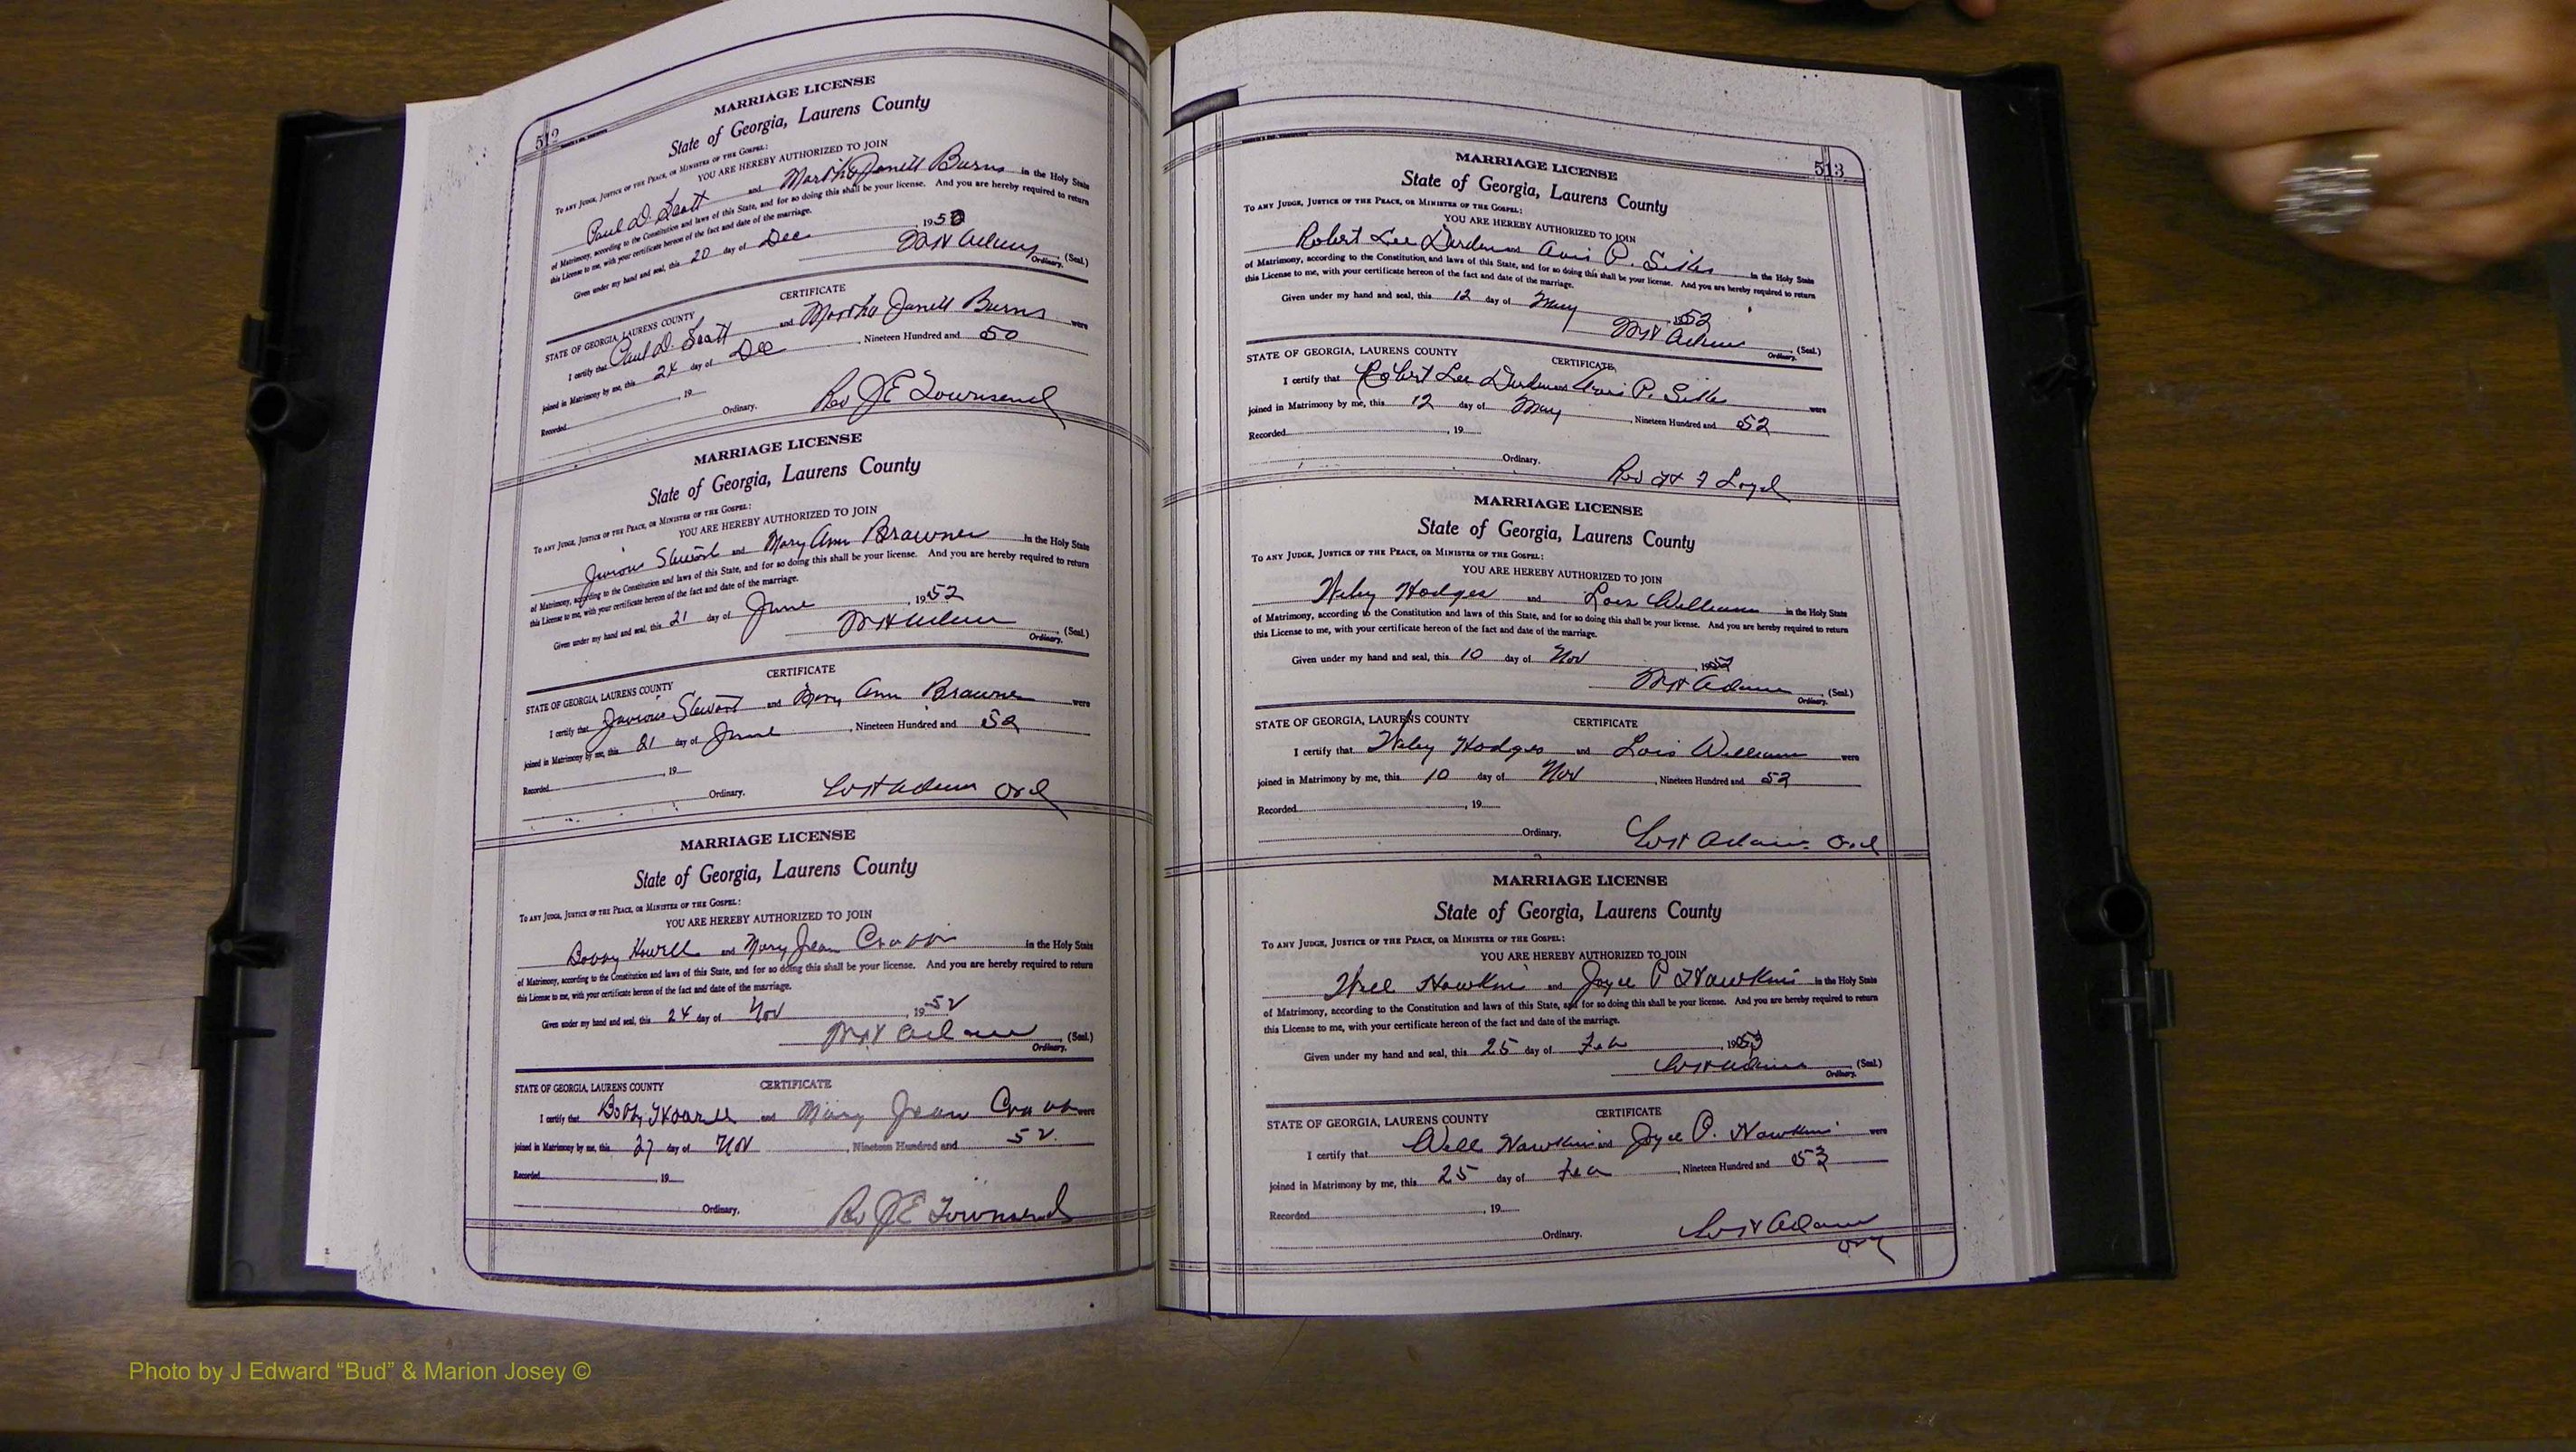 512
MARRIAGE LICENSE
State of Georgia, Laurens County
TO ANY JUDGE, JUSTICE OF THE PEACE, OR MINISTER OF THE GOSPEL:
YOU ARE HEREBY AUTHORIZED TO JOIN
Paul D. Scott and Martha Janell Burns in the Holy State
of Matrimony, according to the Constitution and laws of this State, and for so doing this shall be your license. And you are hereby required to return
this License to me, with your certificate hereon of the fact and date of the marriage.
Given under my hand and seal, this 20 day of Dec 1950
Adams (Seal.)
Ordinary.
CERTIFICATE
STATE OF GEORGIA, LAURENS COUNTY
I certify that Paul D. Scott and Martha Janell Burns were
joined in Matrimony by me, this 24 day of Dec, Nineteen Hundred and 50
Recorded, 19
Ordinary.
Rev JE Townsend
MARRIAGE LICENSE
State of Georgia, Laurens County
TO ANY JUDGE, JUSTICE OF THE PEACE, OR MINISTER OF THE GOSPEL:
YOU ARE HEREBY AUTHORIZED TO JOIN
Stewart and Mary Ann Brawner in the Holy State
of Matrimony, according to the Constitution and laws of this State, and for so doing this shall be your license. And you are hereby required to return
this License to me, with your certificate hereon of the fact and date of the marriage.
Given under my hand and seal, this 21 day of June, 1952
Adams (Seal.)
Ordinary.
CERTIFICATE
STATE OF GEORGIA, LAURENS COUNTY
I certify that Stewart and Mary Ann Brawner were
joined in Matrimony by me, this 21 day of June, Nineteen Hundred and 52
Recorded, 19
Ordinary.
Adams Ord
MARRIAGE LICENSE
State of Georgia, Laurens County
TO ANY JUDGE, JUSTICE OF THE PEACE, OR MINISTER OF THE GOSPEL:
YOU ARE HEREBY AUTHORIZED TO JOIN
Bobby Howell and Mary Jean in the Holy State
of Matrimony, according to the Constitution and laws of this State, and for so doing this shall be your license. And you are hereby required to return
this License to me, with your certificate hereon of the fact and date of the marriage.
Given under my hand and seal, this 24 day of Nov, 1952
Adams (Seal.)
Ordinary.
STATE OF GEORGIA, LAURENS COUNTY CERTIFICATE
I certify that Bobby Howell and Mary Jean were
joined in Matrimony by me, this 27 day of Nov, Nineteen Hundred and 52
Recorded, 19
Ordinary.
Rev JE Townsend
513
MARRIAGE LICENSE
State of Georgia, Laurens County
TO ANY JUDGE, JUSTICE OF THE PEACE, OR MINISTER OF THE GOSPEL:
YOU ARE HEREBY AUTHORIZED TO JOIN
Robert Lee Darden and Avis P. in the Holy State
of Matrimony, according to the Constitution and laws of this State, and for so doing this shall be your license. And you are hereby required to return
this License to me, with your certificate hereon of the fact and date of the marriage.
Given under my hand and seal, this 12 day of May 1952
Adams (Seal.)
Ordinary.
STATE OF GEORGIA, LAURENS COUNTY CERTIFICATE
I certify that Robert Lee Darden and Avis P. were
joined in Matrimony by me, this 12 day of May, Nineteen Hundred and 52
Recorded, 19
Ordinary.
Rev Loyd
MARRIAGE LICENSE
State of Georgia, Laurens County
TO ANY JUDGE, JUSTICE OF THE PEACE, OR MINISTER OF THE GOSPEL:
YOU ARE HEREBY AUTHORIZED TO JOIN
Hodges and Lois Williams in the Holy State
of Matrimony, according to the Constitution and laws of this State, and for so doing this shall be your license. And you are hereby required to return
this License to me, with your certificate hereon of the fact and date of the marriage.
Given under my hand and seal, this 10 day of Nov, 1952
Adams (Seal.)
Ordinary.
STATE OF GEORGIA, LAURENS COUNTY CERTIFICATE
I certify that Hodges and Lois Williams were
joined in Matrimony by me, this 10 day of Nov, Nineteen Hundred and 52
Recorded, 19
Ordinary.
Adams Ord
MARRIAGE LICENSE
State of Georgia, Laurens County
TO ANY JUDGE, JUSTICE OF THE PEACE, OR MINISTER OF THE GOSPEL:
YOU ARE HEREBY AUTHORIZED TO JOIN
Will Hawkins and Joyce P Hawkins in the Holy State
of Matrimony, according to the Constitution and laws of this State, and for so doing this shall be your license. And you are hereby required to return
this License to me, with your certificate hereon of the fact and date of the marriage.
Given under my hand and seal, this 25 day of Feb, 1953
Adams (Seal.)
Ordinary.
STATE OF GEORGIA, LAURENS COUNTY CERTIFICATE
I certify that Will Hawkins and Joyce P. Hawkins were
joined in Matrimony by me, this 25 day of Feb, Nineteen Hundred and 53
Recorded, 19
Ordinary.
Adams
Ord
Photo by J Edward “Bud” & Marion Josey ©